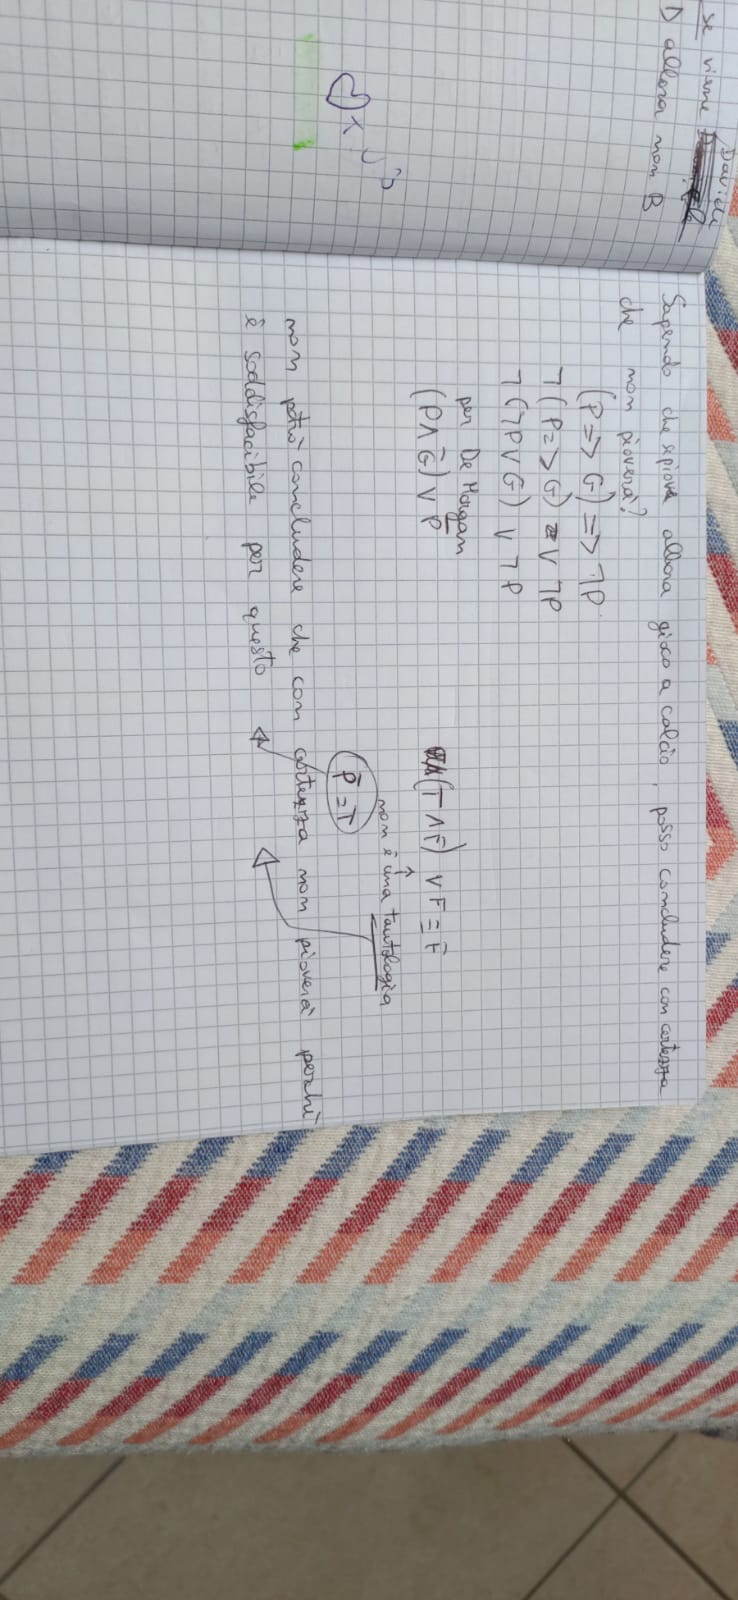 se viene Davide
D allora non B
Sapendo che se piove allora gioco a calcio, posso concludere con certezza
che non pioverà?
(P => G) => ¬P.
¬(P => G) ∨ ¬P
¬(¬P ∨ G) ∨ ¬P
per De Morgan
(P ∧ G̅) ∨ P̅
(T ∧ F) ∨ F = F
non è una tautologia
P = T
non potrò concludere che con certezza non pioverà perché
è soddisfacibile per questo